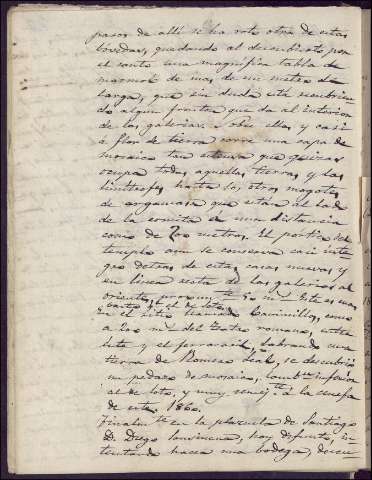 pasos de allí se ha roto otra de estas
bóvedas, quedando al descubierto por
el canto una magnifica tabla de
marmol de mas de un metro de
larga, que sin duda está cubriendo
do algun frontis que da al interior
de las galerias. Por ellas y casi
á flor de tierra corre una capa de
mosaico tan estensa que quizas
ocupa todas aquellas tierras y las
limitrofes hasta los otros magotes
de argamasa que estan al lado
de la ermita á una distancia
como de 200 metros. El portico del
templo aun se conserva casi inte
gro detras de estas casas nuevas y
en linea recta de las galerias al
oriente, 50 m. Este es mas
En el sitio llamado Caminillo, como
á 200 m. del teatro romano, entre
este y el ferrocarril, labrando una
tierra de Romero Leal, se descubrió
un pedazo de mosaico, tamb.n inferior
al de loto, y muy semej.te á la cenefa
de este, 1860.
Finalm.te en la plazuela de Santiago
D. Diego, hoy difunto, in
tentando hacer una bodega, descu